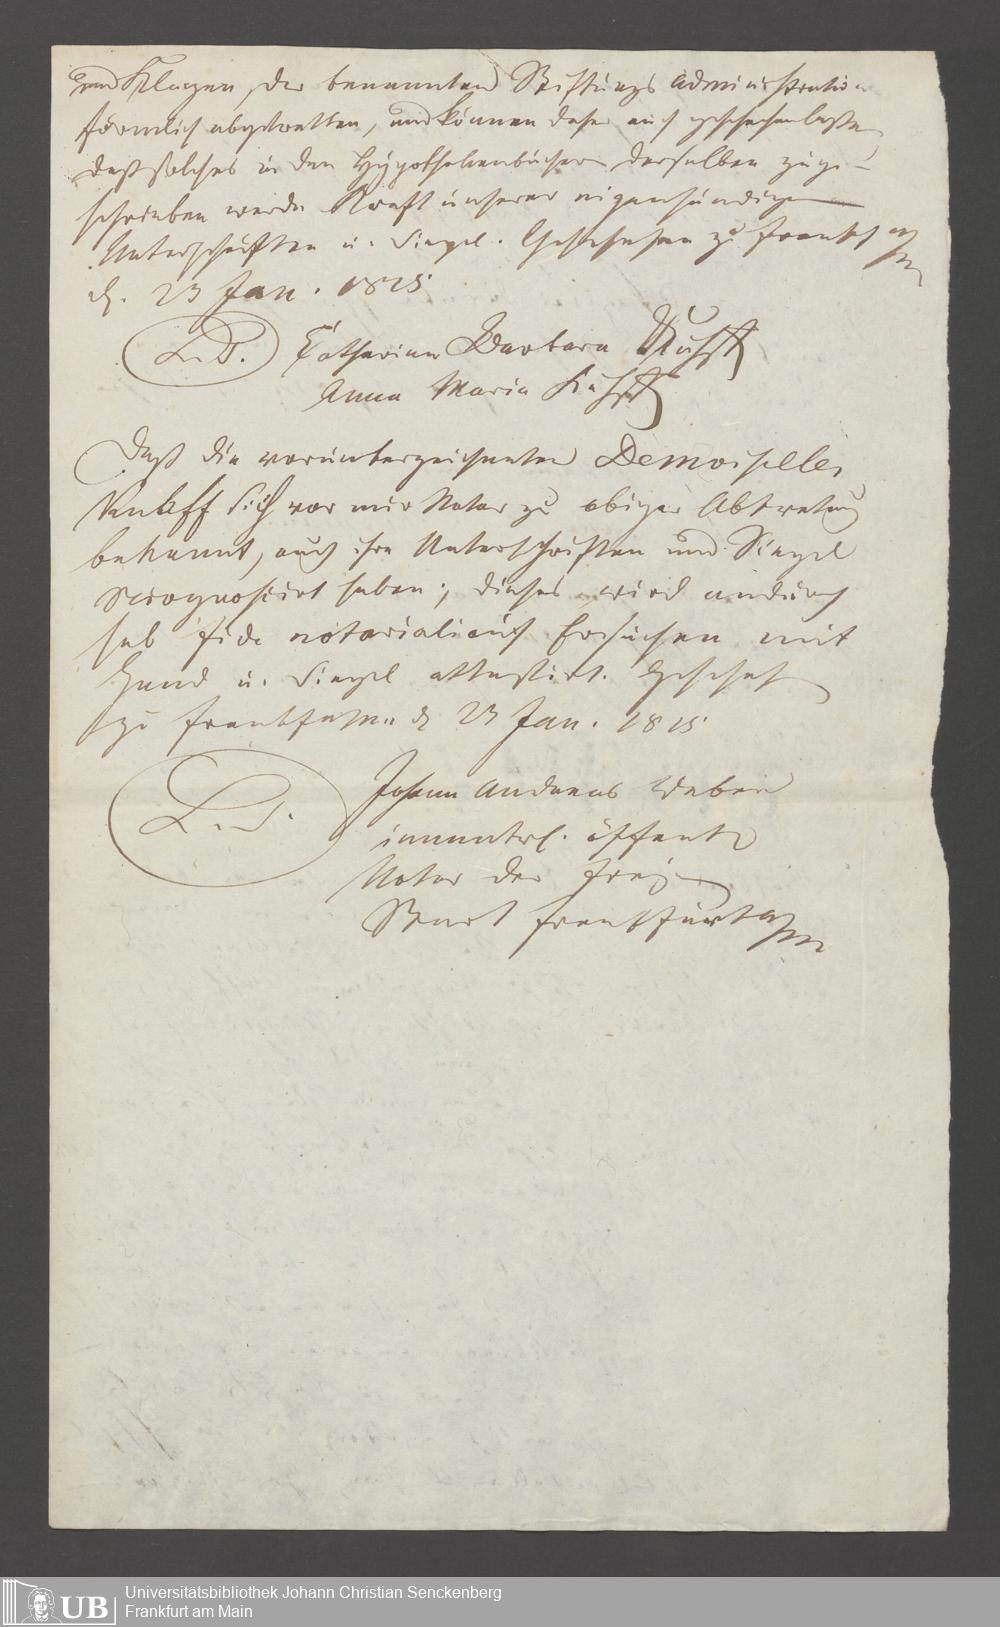 und Klagen, der benannten Stiftungs Administration
förmlich abgetretten, und können daher auch geschehen lassen
daß solches in den Hypothekenbüchern derselben zuge-
schrieben werde Kraft unserer eigenhändigen
Unterschriften u. Siegel. Geschehen zu Frankf a/m
d. 23 Jan. 1815
L. S. Catharina Barbara
Anna Maria
Daß die vorunterzeichneten Demoiselles
sich vor mir Notar zu obiger Abtretung
bekannt, auch ihre Unterschriften und Siegel
recognoscirt haben; dieses wird andurch
sub fide notariali auf Ersuchen mit
Hand u. Siegel attestirt. Geschehen
zu Frankfurt d 23 Jan. 1815
L. S. Johann Andreas Weber
immatrl. öffentl
Notar der freyen
Stadt Frankfurt a/m
UB Universitätsbibliothek Johann Christian Senckenberg
Frankfurt am Main